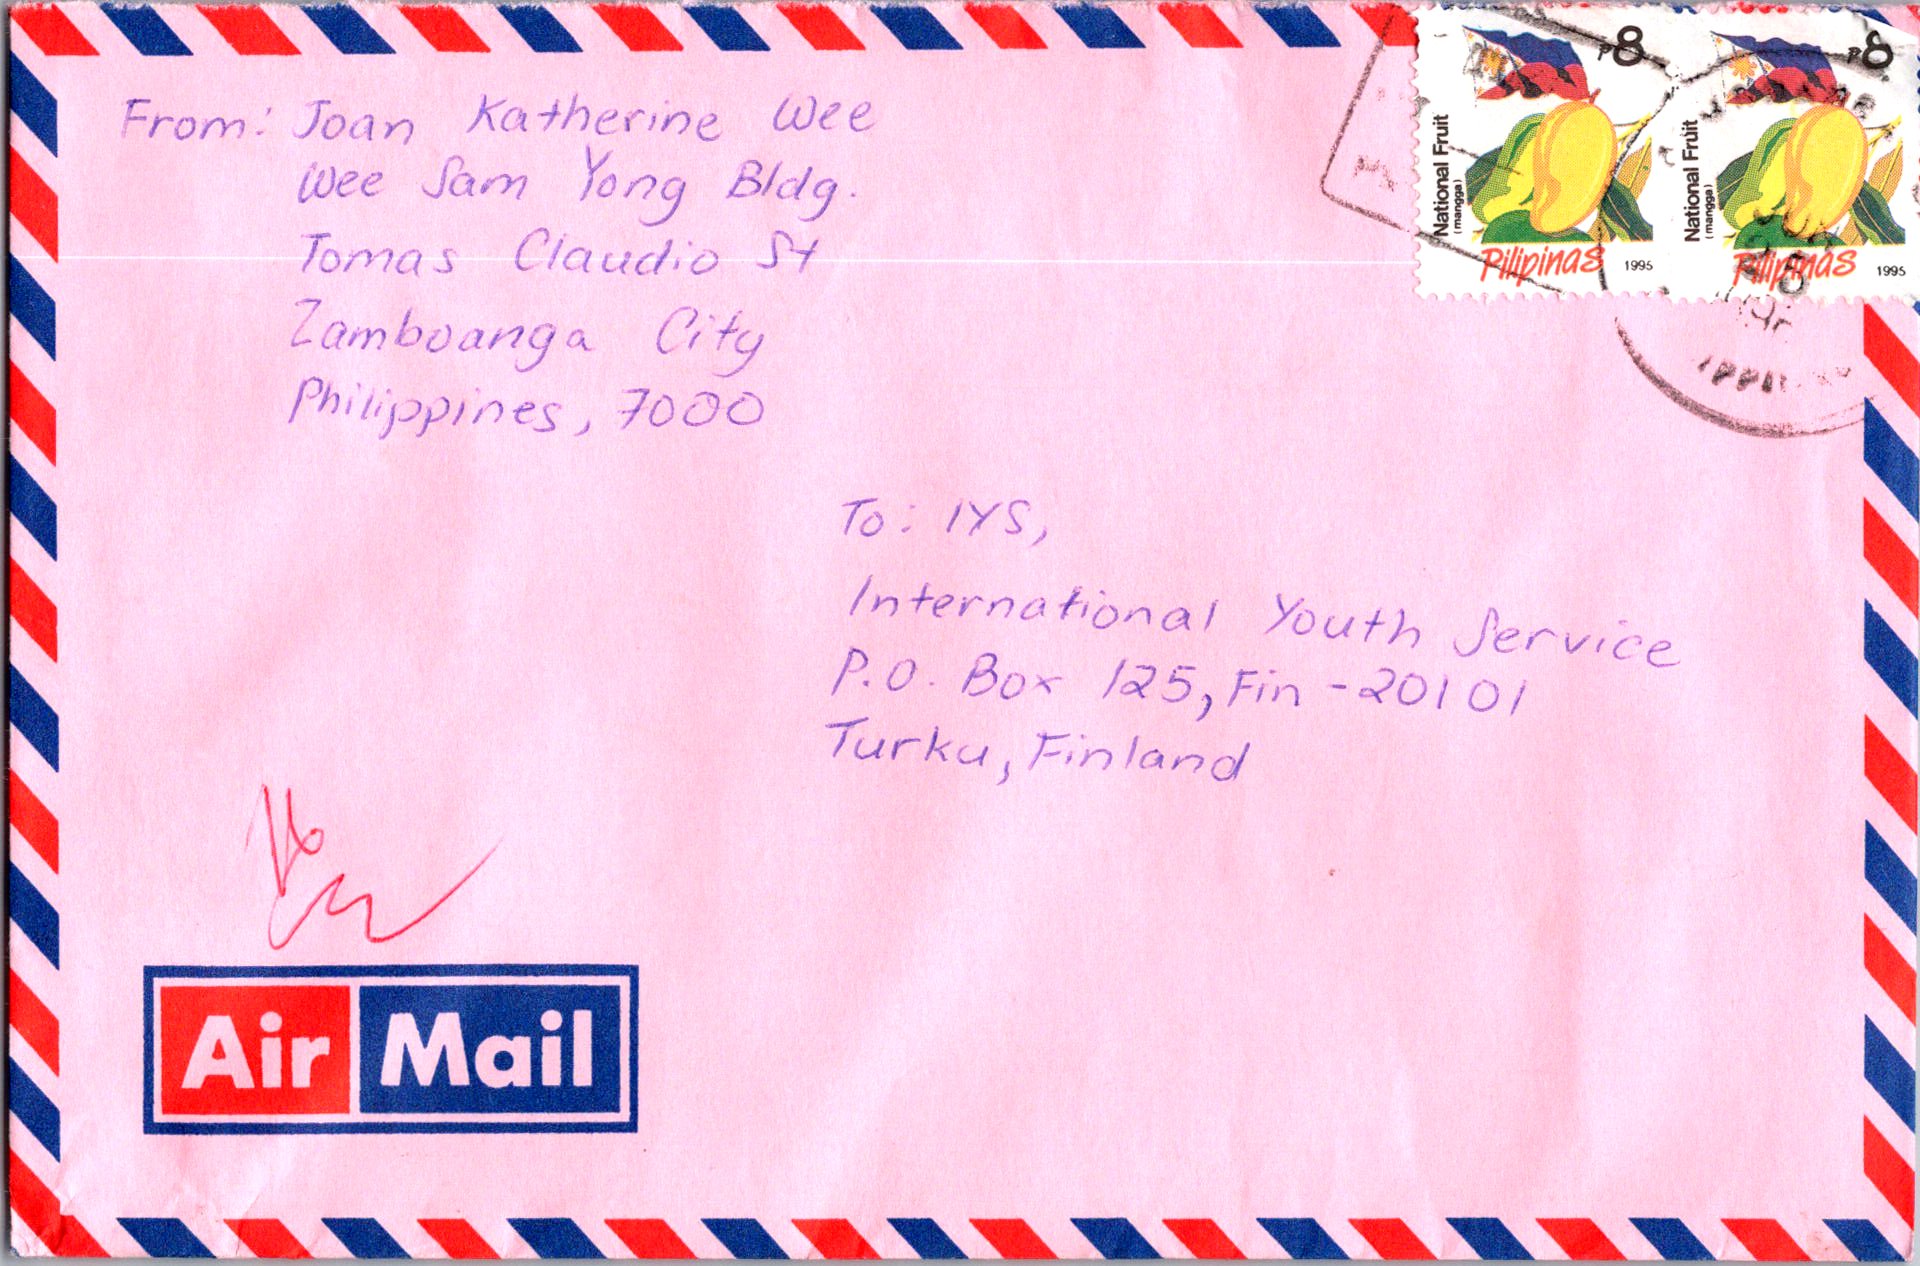 From: Joan Katherine Wee
Wee Sam Yong Bldg.
Tomas Claudio St
Zamboanga City
Philippines, 7000
₱8
National Fruit
(mangga)
Pilipinas 1995
₱8
National Fruit
(mangga)
Pilipinas 1995
To: IYS,
International Youth Service
P.O. Box 125, Fin-20101
Turku, Finland
Air Mail